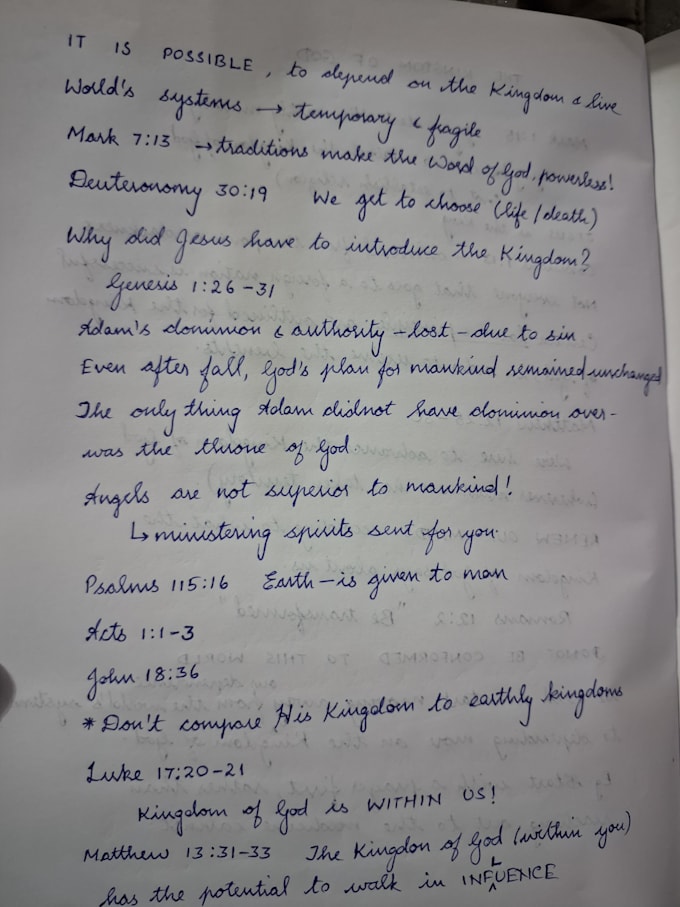 IT IS POSSIBLE, to depend on the Kingdom & live
World's systems → temporary & fragile
Mark 7:13 → traditions make the Word of God powerless!
Deuteronomy 30:19 We get to choose (life/death)
Why did Jesus have to introduce the Kingdom?
Genesis 1:26-31
Adam's dominion & authority - lost - due to sin
Even after fall, God's plan for mankind remained unchanged
The only thing Adam didnot have dominion over -
was the throne of God.
Angels are not superior to mankind!
↳ ministering spirits sent for you.
Psalms 115:16 Earth - is given to man
Acts 1:1-3
John 18:36
* Don't compare His Kingdom to earthly kingdoms
Luke 17:20-21
Kingdom of God is WITHIN US!
Matthew 13:31-33 The Kingdon of God (within you)
has the potential to walk in INFLUENCE